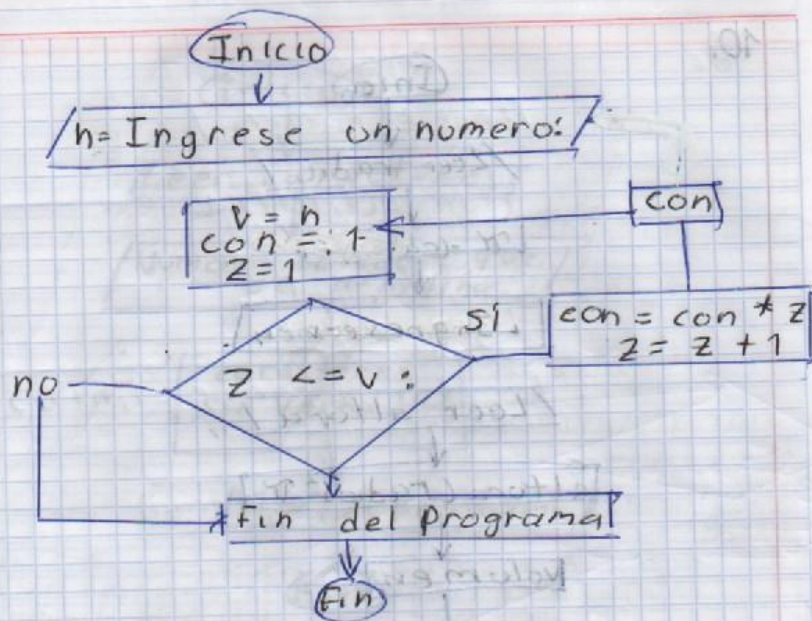 Inicio
n= Ingrese un numero:
con
v = n
con = 1
z=1
si
con = con * z
z = z + 1
no
z <= v :
Fin del Programa
Fin